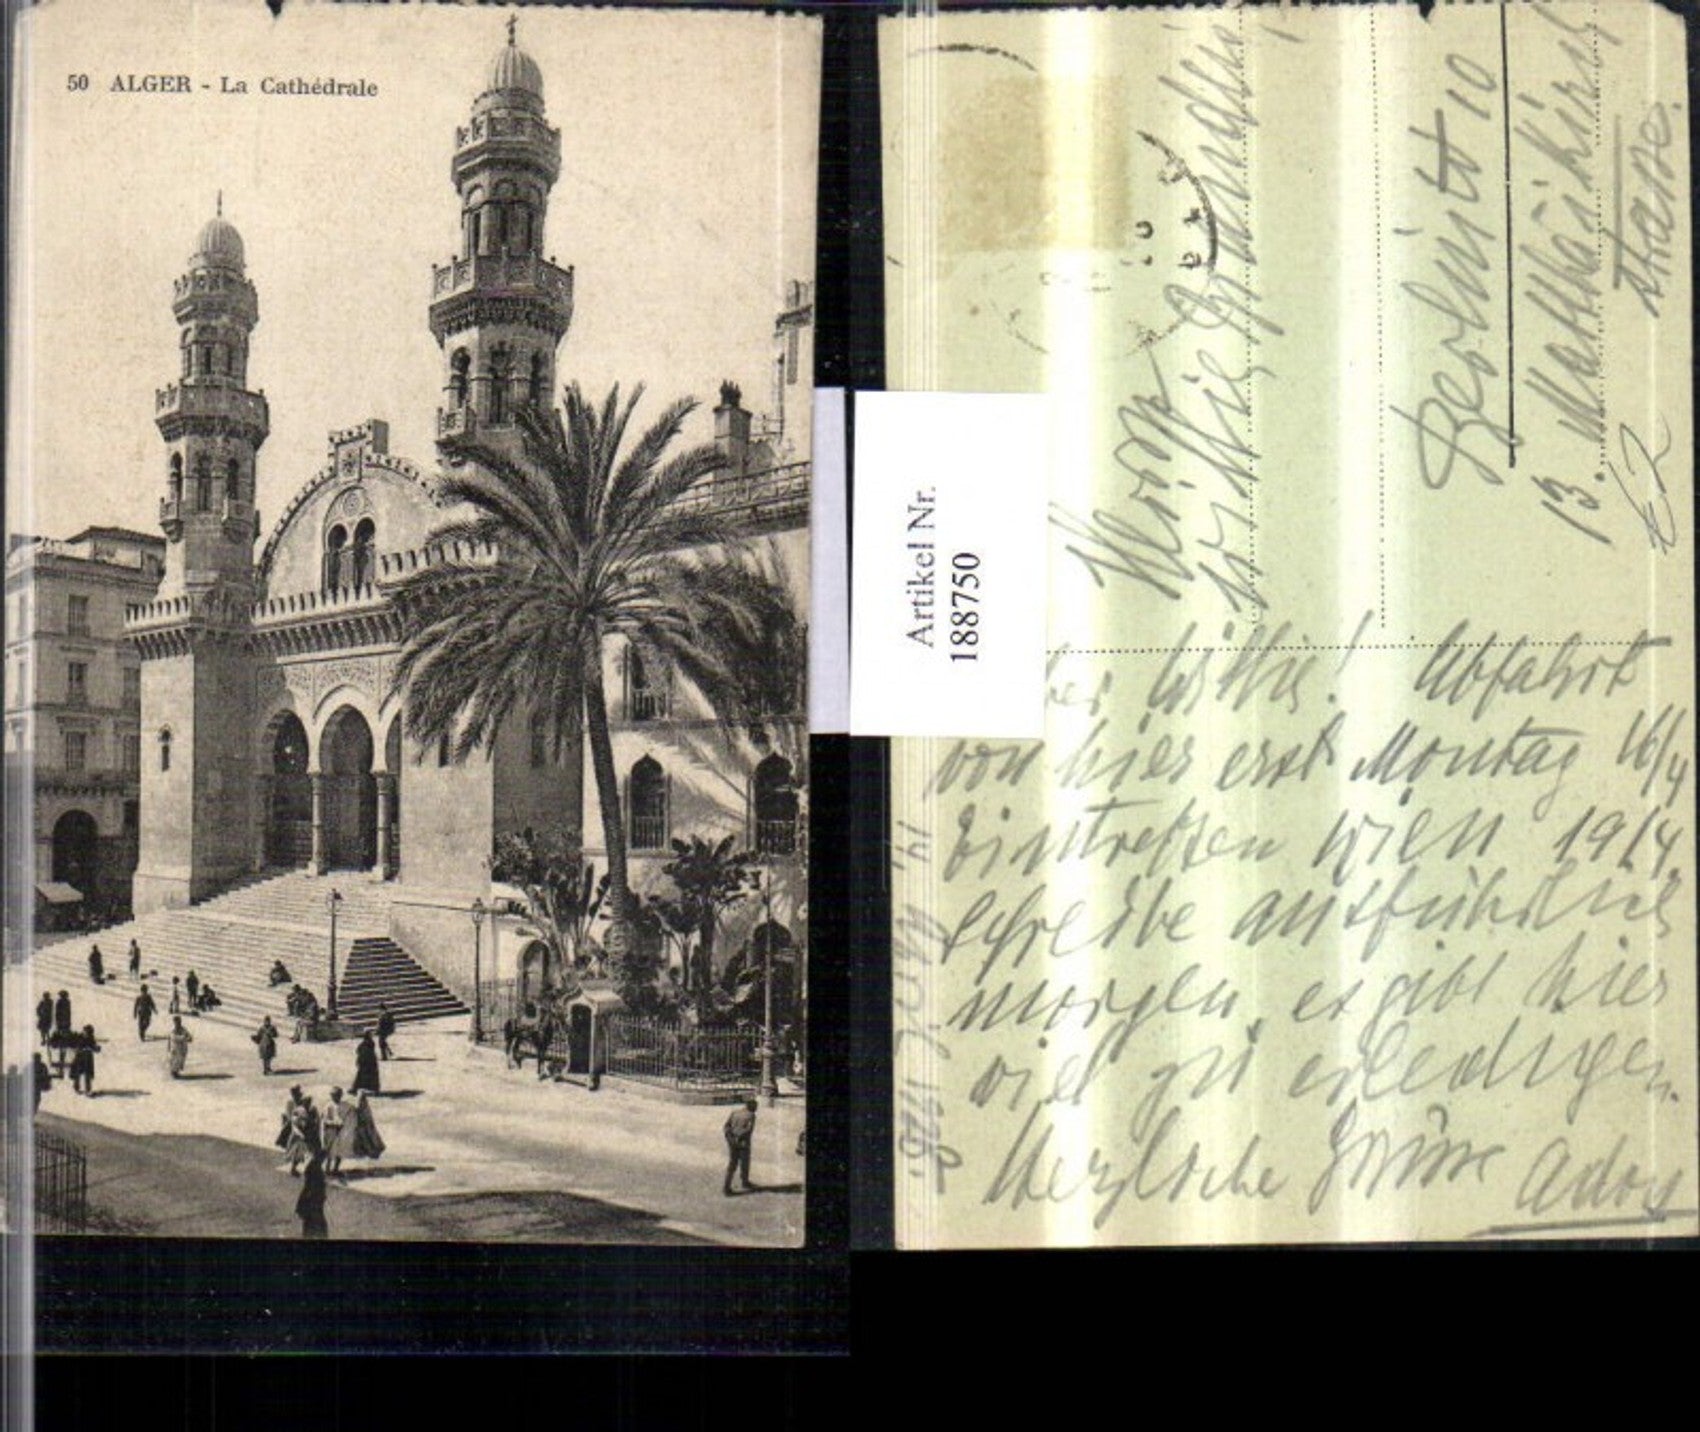 50 ALGER - La Cathédrale
Artikel Nr.
188750
Herrn
Willie
Berlin W 10
13. Matthäikirch
strasse.
Willie! Abfahrt
von hier erst Montag 16/4
Eintreffen Wien 19/4.
schreibe ausführlich
morgen, es gibt hier
viel zu erledigen.
Herzliche Grüsse